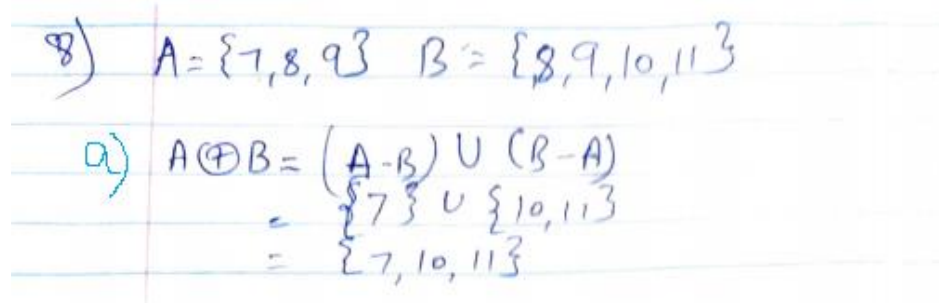 8) A = {7,8,9} B = {8,9,10,11}
a) A⊕B = (A-B) ∪ (B-A)
= {7} ∪ {10,11}
= {7,10,11}